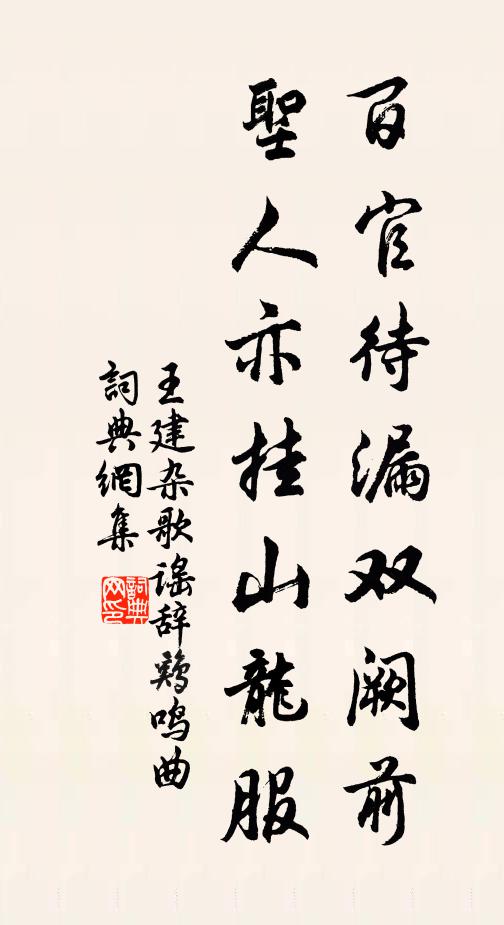 百官待漏双阙前
聖人亦挂山龍服
王建杂歌谣辞鷄鸣曲
詞典網集
詞典
网印